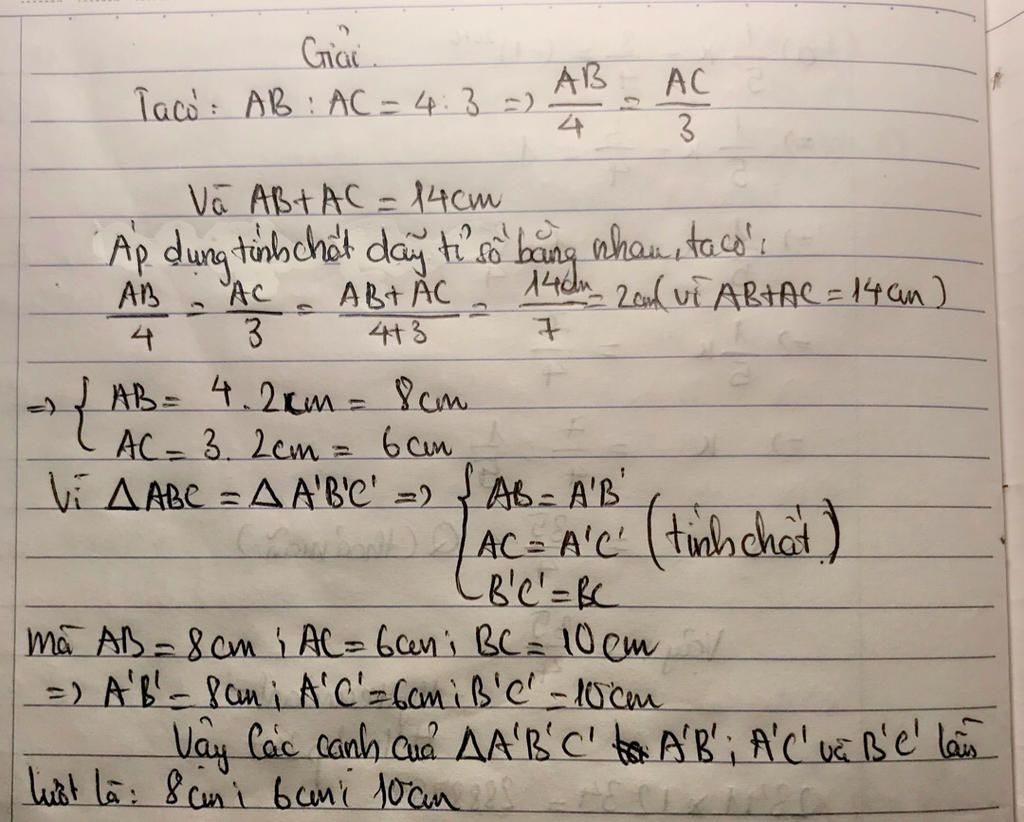 Giải.
Ta có: AB : AC = 4 : 3 => AB/4 = AC/3
Và AB + AC = 14cm
Áp dụng tính chất dãy tỉ số bằng nhau, ta có:
AB/4 = AC/3 = AB + AC/4+3 = 14cm/7 = 2cm (vì AB + AC = 14cm)
=> { AB = 4 . 2cm = 8cm
AC = 3 . 2cm = 6cm
Vì ΔABC = ΔA'B'C' => { AB = A'B'
AC = A'C' (tính chất)
B'C' = BC
mà AB = 8cm ; AC = 6cm ; BC = 10cm
=> A'B' = 8cm ; A'C' = 6cm ; B'C' = 10cm
Vậy các cạnh của ΔA'B'C' A'B' ; A'C' và B'C' lần
lượt là : 8cm ; 6cm ; 10cm